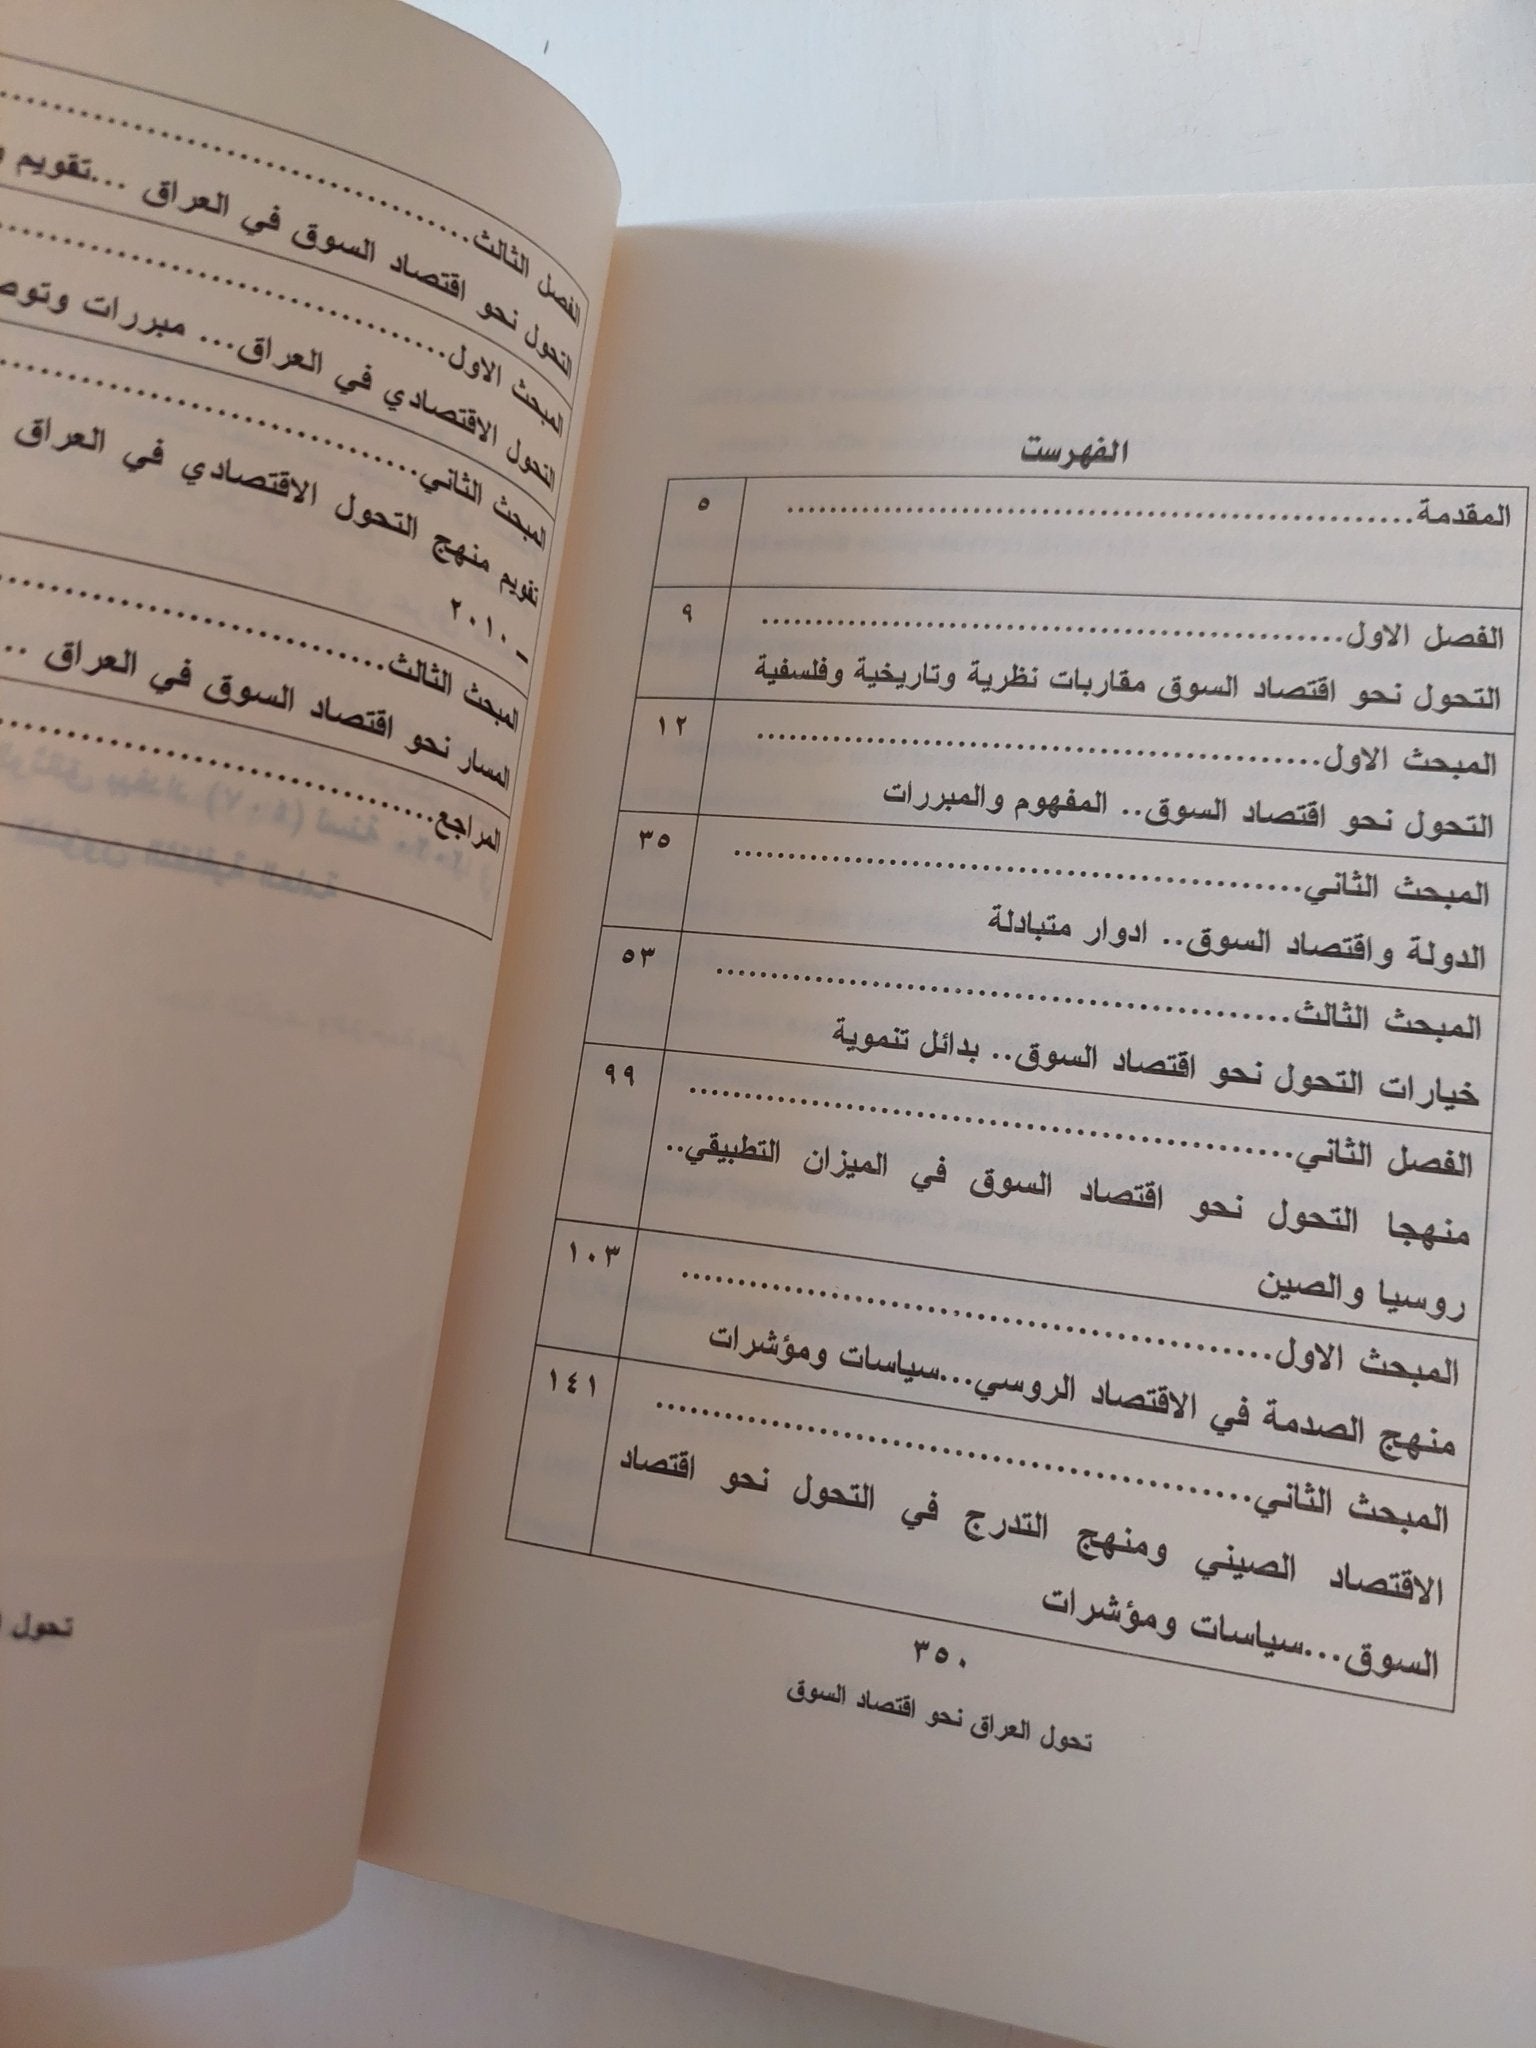 الفهرست
المقدمة........................................................ ٥
الفصل الاول.................................................... ٩
التحول نحو اقتصاد السوق مقاربات نظرية وتاريخية وفلسفية
المبحث الاول................................................... ١٢
التحول نحو اقتصاد السوق.. المفهوم والمبررات
المبحث الثاني.................................................. ٣٥
الدولة واقتصاد السوق.. ادوار متبادلة
المبحث الثالث.................................................. ٥٣
خيارات التحول نحو اقتصاد السوق.. بدائل تنموية
الفصل الثاني................................................... ٩٩
منهجا التحول نحو اقتصاد السوق في الميزان التطبيقي..
روسيا والصين
المبحث الاول................................................... ١٠٣
منهج الصدمة في الاقتصاد الروسي...سياسات ومؤشرات
المبحث الثاني.................................................. ١٤١
الاقتصاد الصيني ومنهج التدرج في التحول نحو اقتصاد
السوق...سياسات ومؤشرات
٣٥٠
تحول العراق نحو اقتصاد السوق
الفصل الثالث..................................
التحول نحو اقتصاد السوق في العراق ...تقويم
المبحث الاول..................................
التحول الاقتصادي في العراق... مبررات
المبحث الثاني..................................
تقويم منهج التحول الاقتصادي في العراق
– ٢٠١٠
المبحث الثالث..................................
المسار نحو اقتصاد السوق في العراق ..
المراجع..................................
تحول